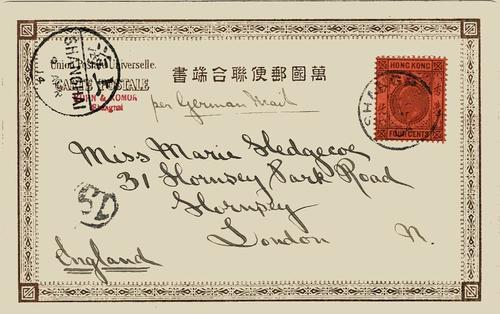 Union Postale Universelle.
CARTE POSTALE
書端合聯便郵國萬
KUHN & KOMOR
Shanghai
per German Mail
SHANGHAI
HONG KONG
FOUR CENTS
SHANGH
Miss Marie Sledgecoe
31 Hornsey Park Road
Hornsey
London N.
England